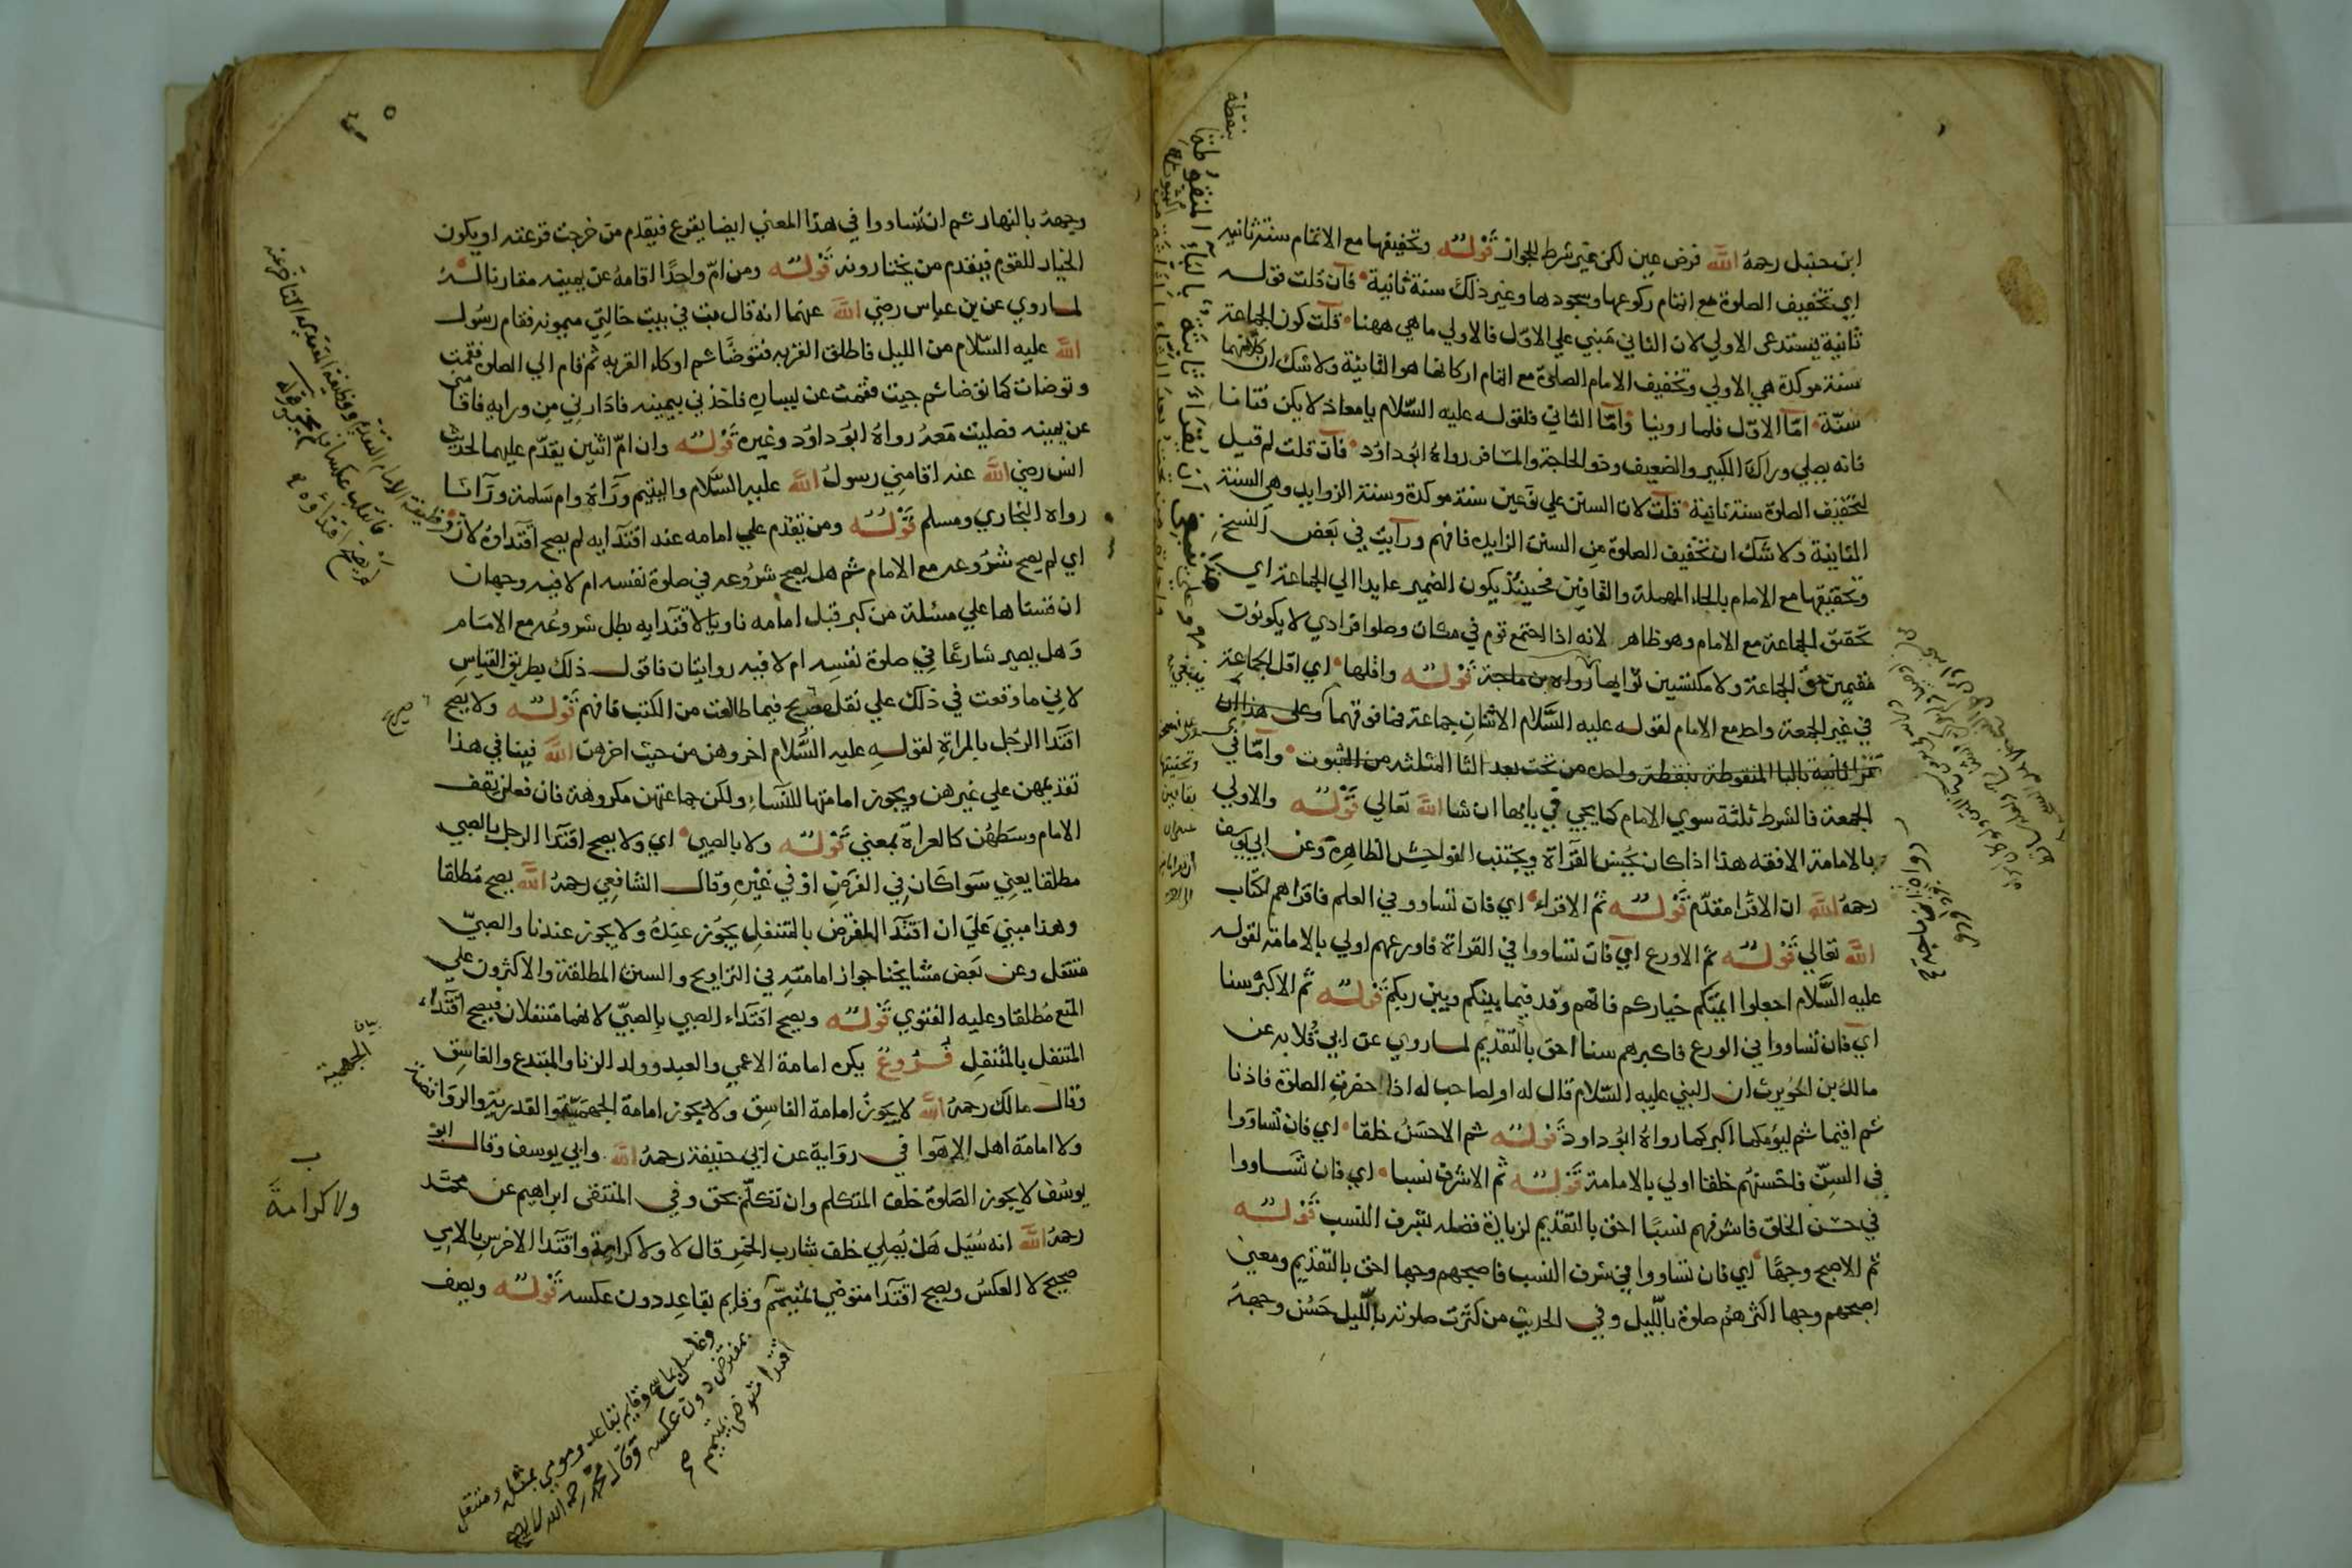 ابن حنبل رحمه الله فرض عين لكن غير شرط الجواز قوله وتخفيفها مع الاتمام سنة ثانية
اي تخفيف الصلوة مع اتمام ركوعها وسجودها وغير ذلك سنة ثانية فان قلت قوله
ثانية يستدعى الاولي لان الثاني مبني علي الاول فالاولي ما هي ههنا قلت كون الجماعة
سنة موكدة هي الاولي وتخفيف الامام الصلوة مع اتمام اركانها هو الثانية ولا شك ان كلاهما
سنة امّا الاوّل فلما روينا وامّا الثاني فلقوله عليه السّلام يا معاذ لا يكن فتانا
فانه يصلي وراك الكبير والضعيف وذو الحاجة والمسافر رواه ابو داود فان قلت لم قيل
لتخفيف الصلوة سنة ثانية قلت لان السنن علي نوعين سنة موكدة وسنة الزوايد وهي السنة
الثانية ولا شك ان تخفيف الصلوة من السنن الزايد فافهم ورايت في بعض النسخ
وتحقيقها مع الامام بالحاء المهملة والقافين فحينئذ يكون الضمير عايدا الي الجماعة اي
تحقق الجماعة مع الامام وهو ظاهر لانه اذا اجتمع قوم في مكان وصلوا فرادي لا يكونون
مقيمين حق الجماعة ولا مكتسبين ثوابها رواه من ماجة قوله واقلها اي اقل الجماعة
في غير الجمعة واحد مع الامام لقوله عليه السّلام الاثنان جماعة فما فوقهما وعلى هذا ان
تقرا ثانية بالبا المنقوطة بنقطة واحدة من تحت بعد الثا المثلثه من الثبوت وامّا في
الجمعة فالشرط ثلثة سوي الامام كما يجي في بابها ان شا الله تعالي قوله والاولي
بالامامة الافقه هذا اذا كان يحسن القرآة ويجتنب الفواحش الظاهرة وعن ابي يوسف
رحمه الله ان الاقرا مقدّم قوله ثم الاقراء اي فان تساووا في العلم فاقراهم لكتاب
الله تعالي قوله ثم الاورع اي فان تساووا في القراة فاورعهم اولي بالامامة لقوله
عليه السّلام اجعلوا ايمتكم خياركم فانهم وفد فيما بينكم وبين ربكم قوله ثم الاكبر سنا
اي فان تساووا في الورع فاكبرهم سنا احق بالتقديم لما روي عن ابي قلابه عن
مالك بن الحويرث ان النبي عليه السّلام قال له او لصاحب له اذا حضرت الصلوة فاذنا
ثم اقيما ثم ليومكما اكبركما رواه ابو داود قوله ثم الاحسن خلقا اي فان تساووا
في السن فاحسنهم خلقا اولي بالامامة قوله ثم الاشرف نسبا اي فان تساووا
في حسن الخلق فاشرفهم نسبا احق بالتقديم لزيادة فضله لشرف النسب قوله
ثم الاصبح وجها اي فان تساووا في شرف النسب فاصبحهم وجها احق بالتقديم ومعنى
اصبحهم وجها اكثرهم صلوة بالليل وفي الحديث من كثرت صلوته بالليل حسن وجهه
بنقطة
ان يقراء ثانية بالباء المنقوطة
رواه ابن ماجة
وجهه بالنهار ثم ان تساووا في هذا المعني ايضا يقرع فيقدم من خرجت قرعته او يكون
الخيار للقوم فيقدم من يختارونه قوله ومن امّ واحدًا اقامه عن يمينه مقارنا له
لما روي عن بن عباس رضي الله عنهما انه قال بت في بيت خالتي ميمونه فقام رسول
الله عليه السّلام من الليل فاطلق القربه فتوضّا ثم اوكاء القربه ثم قام الي الصلوة فقمت
وتوضات كما توضا ثم جيت فقمت عن يساره فاخذني بيمينه فادارني من ورايه فاقامني
عن يمينه فصليت معه رواه ابو داود وغيره قوله وان امّ اثنين يقدّم عليهما لحديث
انس رضي الله عنه اقامني رسول الله عليه السّلام واليتيم ورآه وام سلمة ورآنا
رواه البخاري ومسلم قوله ومن تقدم علي امامه عند اقتدايه لم يصح اقتداؤه لان وظيفة
اي لم يصح شروعه مع الامام ثم هل يصح شروعه في صلوة نفسه ام لا فيه وجهان
ان قسناها علي مسئلة من كبر قبل امامه ناويا لاقتدايه بطل شروعه مع الامام
وهل يصير شارعا في صلوة نفسه ام لا فيه روايتان فاقول ذلك بطريق القياس
لاني ما وقعت في ذلك علي نقل صريح فيما طالعت من الكتب فافهم قوله ولا يصح
اقتدا الرّجل بالمراة لقوله عليه السّلام اخروهن من حيث اخرهن الله نبينا في هذا
تقديمهن علي غيرهن ويجوز امامتها للنساء ولكن جماعتهن مكروهة فان فعلن تقف
الامام وسطهن كالعراة بمعني قوله ولا بالصبي اي ولا يصح اقتدا الرجل بالصبي
مطلقا يعني سوا كان في الفرض او في غيره وقال الشافعي رحمه الله يصح مطلقا
وهذا مبني علي ان اقتدا المفترض بالمتنفل يجوز عنده ولا يجوز عندنا والصبيّ
متنفل وعن بعض مشايخنا جواز امامته في التراويح والسنن المطلقة والاكثرون علي
المنع مطلقا وعليه الفتوي قوله ويصح اقتداء الصبي بالصبيّ لانهما متنفلان فيصح اقتداء
المتنفل بالمتنفل فروع يكره امامة الاعمي والعبد وولد الزنا والمبتدع والفاسق
وقال مالك رحمه الله لا يجوز امامة الفاسق ولا يجوز امامة الجهمية والقدرية والروافضة
ولا امامة اهل الاهوآ في رواية عن ابي حنيفة رحمه الله وابي يوسف وقال ابو
يوسف لا يجوز الصلوة خلف المتكلم وان تكلّم بحق وفي المنتقى ابراهيم عن محمّد
رحمه الله انه سئيل هل يصلي خلف شارب الخمر قال لا ولا كرامة واقتدا الاخرس بالامي
صحيح لا العكس ويصح اقتدا متوضي لمتيمّم وقايم بقاعد دون عكسه قوله ويصف
صريح
بيان
الجهمية
ب
ولا كرامة
اقتدا متوضي بمتيمم
وغاسل بماسح وقايم بقاعد ومومي بمثله ومتنفل
بمفترض دون عكسه وقال محمد رحمه الله لا يصح